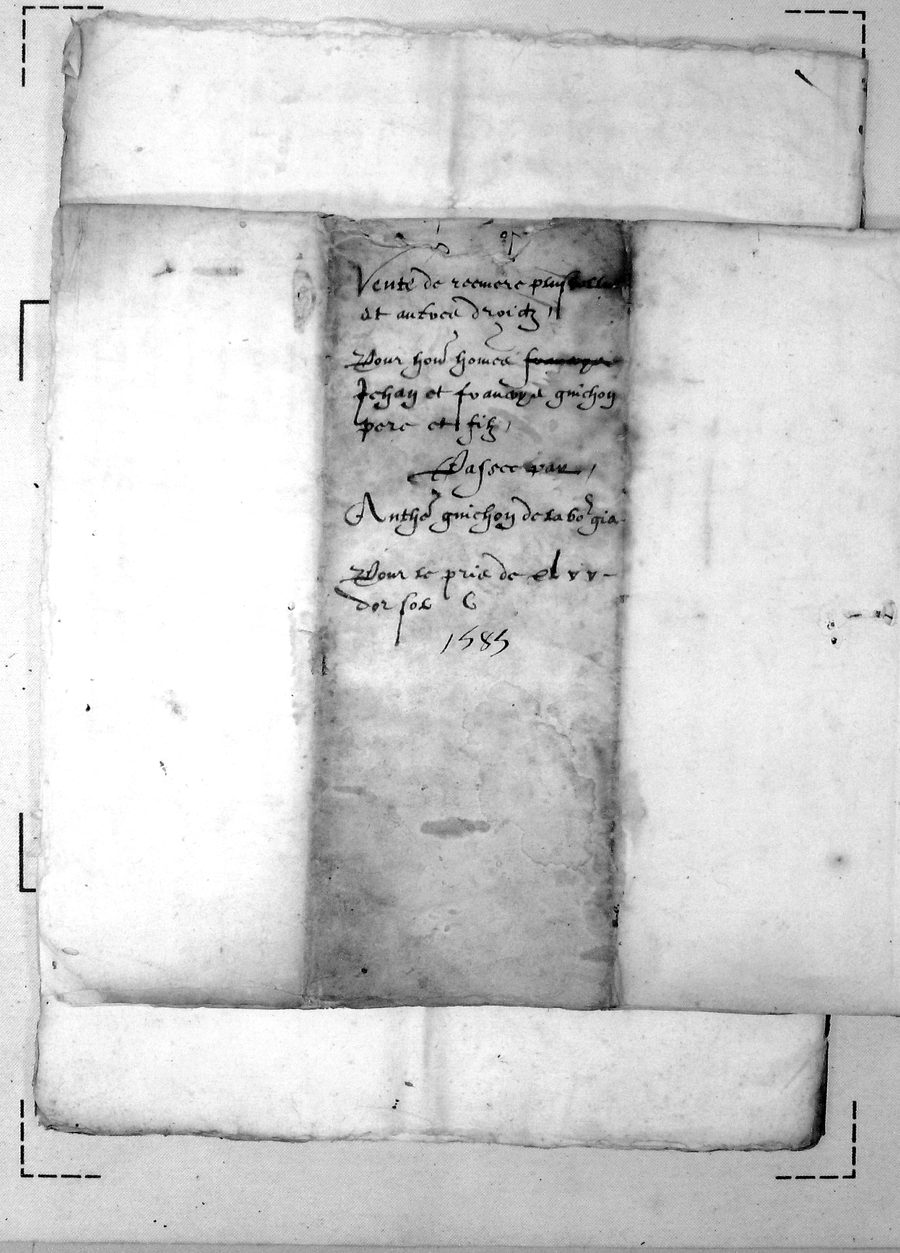 Vente de reemere plus
et autres droictz
Pour hon homes
Jehan et francoys guichon
pere et filz
Passee par
Anthe guichon de la
Pour le pris de
dor sol
1585